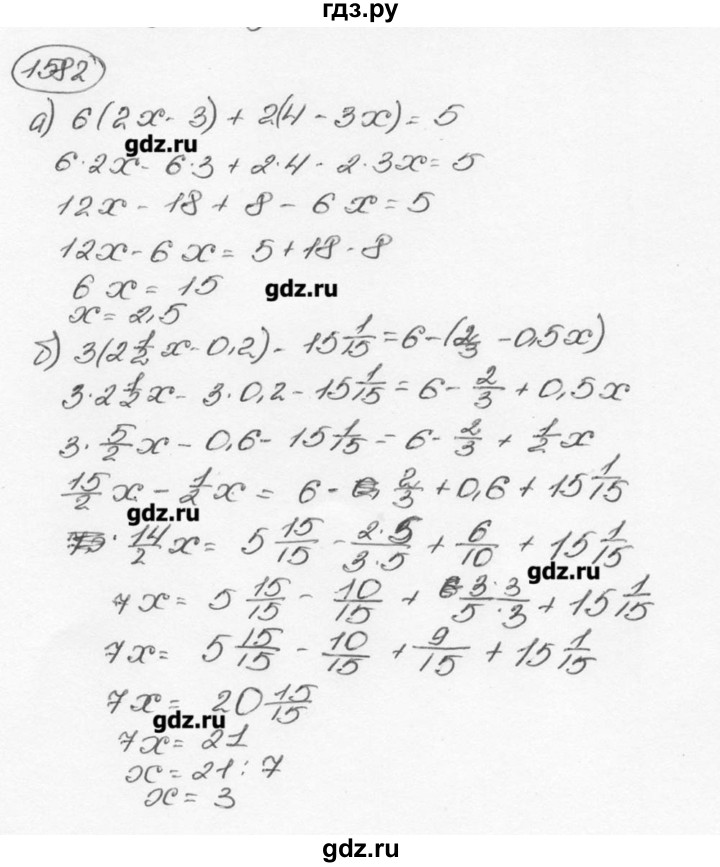 гдз.ру
1582
а) 6(2x - 3) + 2(4 - 3x) = 5
gdz.ru
6·2x - 6·3 + 2·4 - 2·3x = 5
12x - 18 + 8 - 6x = 5
12x - 6x = 5 + 18 - 8
6x = 15
gdz.ru
x = 2,5
б) 3(2 1/2 x - 0,2) - 15 1/15 = 6 - (2/3 - 0,5x)
3·2 1/2 x - 3·0,2 - 15 1/15 = 6 - 2/3 + 0,5x
3· 5/2 x - 0,6 - 15 1/15 = 6 - 2/3 + 1/2 x
15/2 x - 1/2 x = 6 - 2/3 + 0,6 + 15 1/15
gdz.ru
14/2 x = 5 15/15 - 2·5/3·5 + 6/10 + 15 1/15
gdz.ru
7x = 5 15/15 - 10/15 + 3·3/5·3 + 15 1/15
7x = 5 15/15 - 10/15 + 9/15 + 15 1/15
7x = 20 15/15
gdz.ru
7x = 21
x = 21 : 7
x = 3
gdz.ru